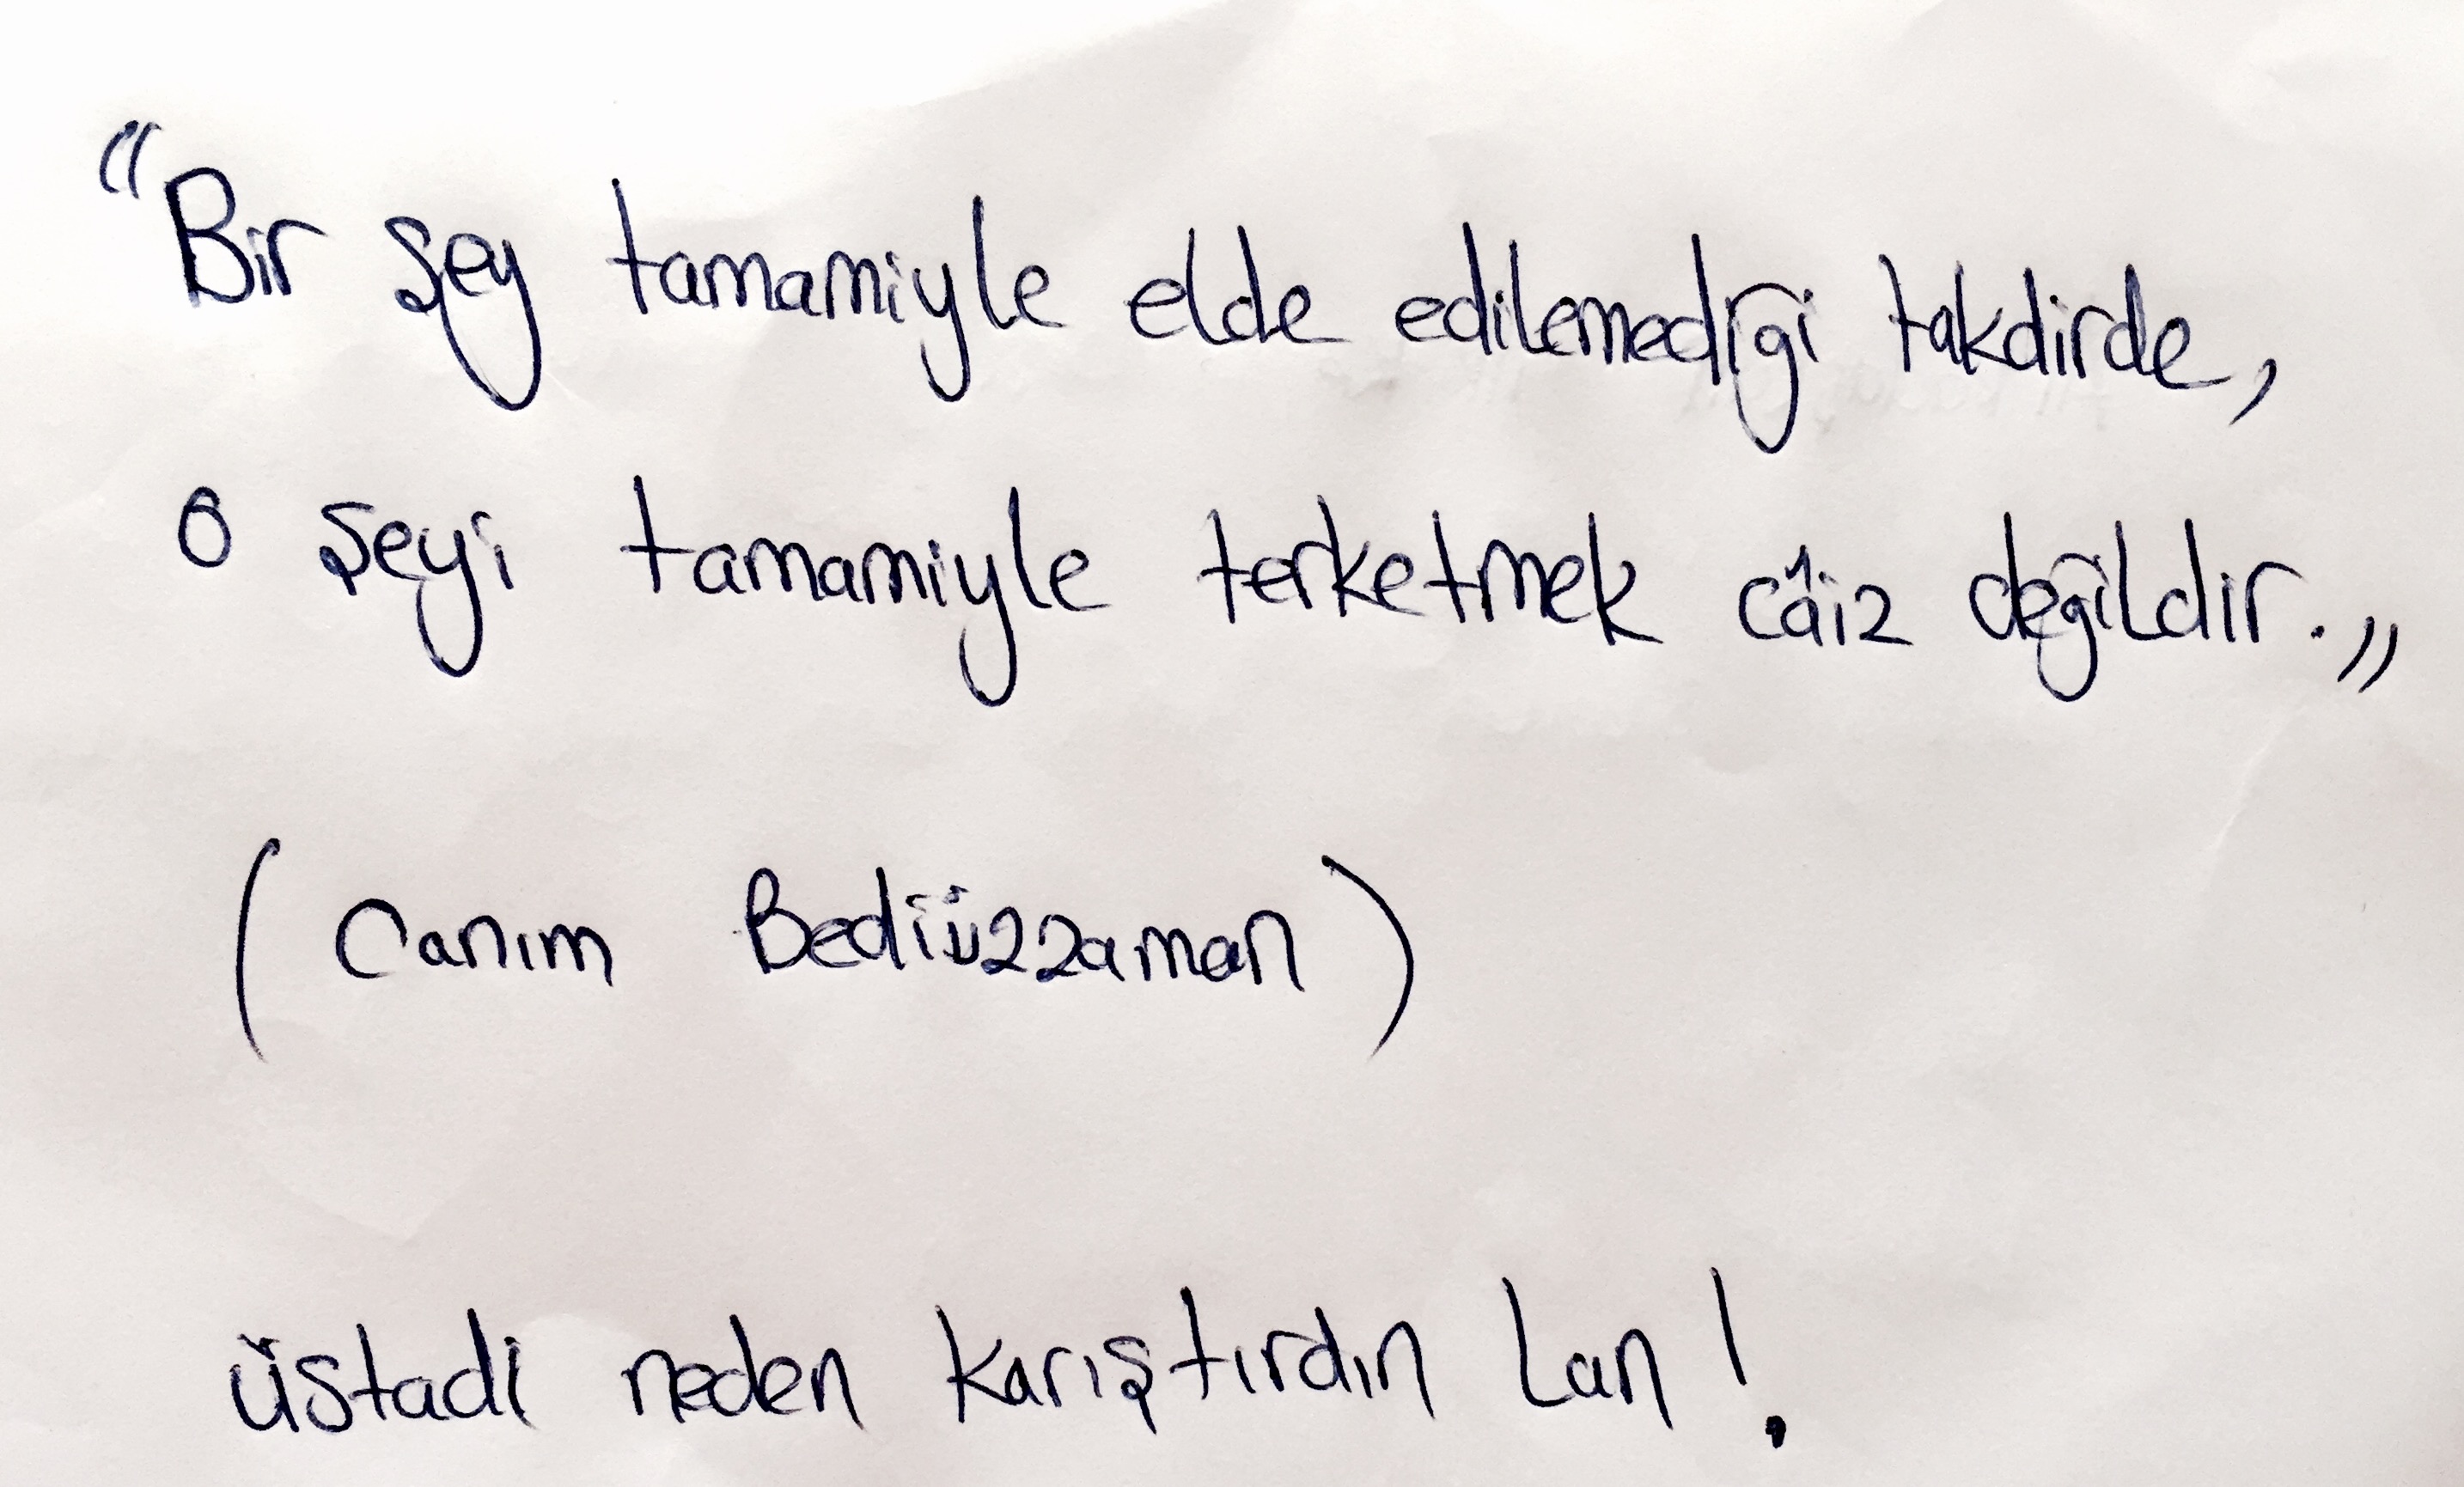 "Bir şey tamamiyle elde edilemediği takdirde,
o şeyi tamamiyle terketmek câiz değildir."
(Canım Bediüzzaman)
üstadi neden karıştırdın Lan!